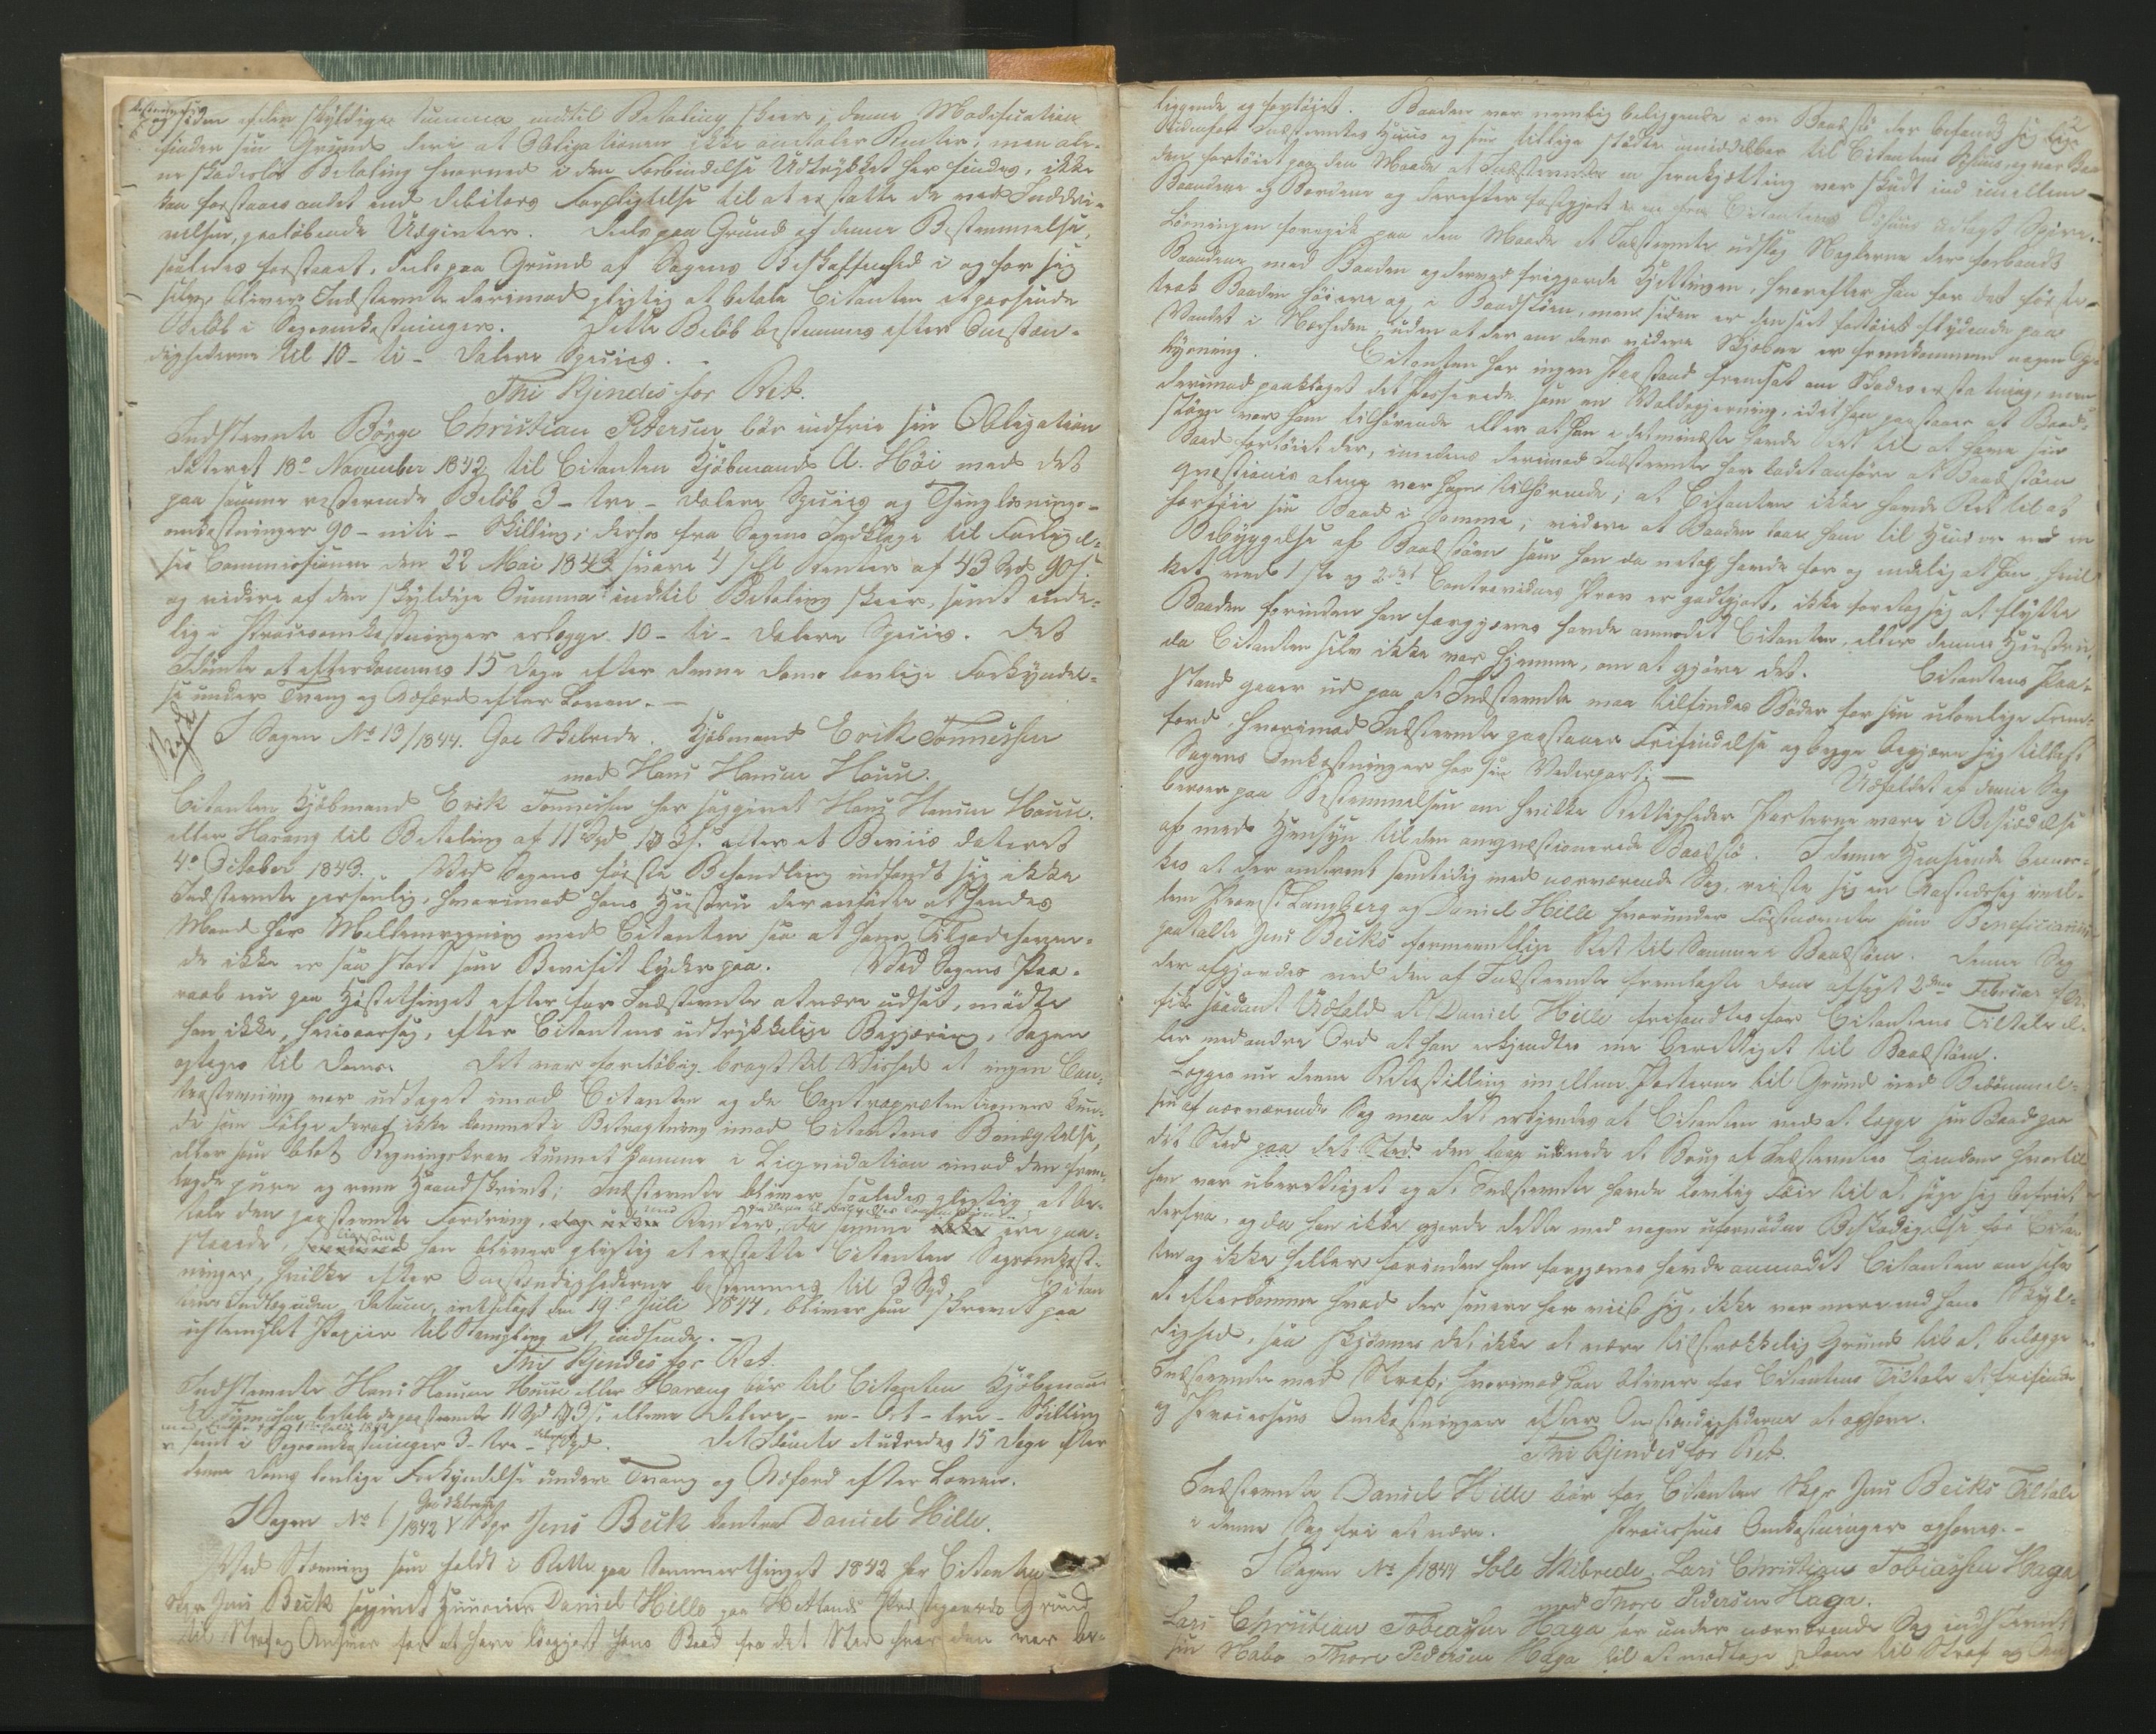 og siden af den skyldige Summa indtil Betaling skeer, denne Modification
finder sin Grund deri at Obligationen ikke omtaler Renter, men ale-
ne skadesløs Betaling hvormed i den Forbindelse Udtrykket her findes, ikke
kan forstaaes andet end Debitors Forpligtelse til at erstatte de ved Inddri-
velsen paaløbende Udgivter. Dels paa Grund af denne Bestemmelse,
saaledes forstaaet, dels paa Grund af Sagens Beskaffenhed i og for sig
selv, bliver Indstevnte derimod pligtig at betale Citanten et passende
Beløb i Sagsomkostninger. Dette Beløb bestemmes efter Omstæn-
dighederne til 10 - ti - Daler Species.
Thi Kjendes for Ret.
Indstevnte Börge Christian Petersen bør indfrie sin Obligation
dateret 18de November 1842 til Citanten Kjøbmand A. Høi med det
paa samme resterende Beløb 3 - tre - Daler Species og Thinglæsnings-
omkostninger 90 - niti - Skilling; derhos fra Sagens Indklage til Forligel-
ses Commissionen den 22 Mai 1843 svare 4 pCt Renter af 43 Spd 90 s
og videre af den skyldige Summa indtil Betaling skeer, samt ende-
lig i Procesomkostninger erlægge 10 - ti - Daler Species. Det
Idømte at efterkommes 15 Dage efter denne Doms lovlige Forkyndel-
se under Tvang og Adfærd efter Loven. -
I Sagen No 13/1844. Goe Skibrede. Kjøbmand Erik Tönnesen
mod Hans Hansen Houen.
Citanten Kjøbmand Erik Tönnesen har sagsøgt Hans Hansen Houen
eller Harang til Betaling af 11 Spd 1 ort 3 s. efter et Beviis dateret
4de October 1843. Ved Sagens første Behandling indfandt sig ikke
Indstevnte personlig, hvorimod hans Hustru der anførte at hendes
Mand har Mellemregning med Citanten saa at hans Tilgodehaven-
de ikke er saa stort som Beviset lyder paa. Ved Sagens Paa-
raab nu paa Høstethinget efter for Indstevnte at være udsat, mødte
han ikke, hvisaarsag, efter Citantens udtrykkelige Begjæring, Sagen
optages til Doms. Det var foreløbig bragt til Vished at ingen Con-
trastevning var udtaget imod Citanten og de Contraprætentioner kun-
de som Følge deraf ikke komme i Betragtning imod Citantens Benægtelse,
eller som blot Regningskrav kunnet komme i Liqvidation imod den frem-
lagde pure og rene Haandskrivt; Indstevnte bliver saaledes pligtig at be-
tale den paastevnte Fordring, med Renter, da samme ere paa-
staaede, ligesom han bliver pligtig at erstatte Citanten Sagsomkost-
ninger, hvilke efter Omstændighederne bestemmes til 3 Spd. Citan-
tens Indlæg uden Datum, indlagt den 19de Juli 1844, bliver som skrevet paa
ustemplet Papiir til Stempling at indsende. -
Thi Kjendes for Ret.
Indstevnte Hans Hansen Houen eller Harang bør til Citanten Kjøbmand
E. Tönnesen betale de paastevnte 11 Spd 1 ort 3 s, elleve Daler - en - Ort - tre - Skilling
samt i Sagsomkostninger 3 - tre - Spd. Det Idømte at udredes 15 Dage efter
denne Doms lovlige Forkyndelse under Tvang og Adfærd efter Loven.
I Sagen No 1/1842 Goe Skibrede Skpr Jens Beck contra Daniel Hille.
Ved Stevning som faldt i Rette paa Sommerthinget 1842 har Citanten
Skpr Jens Beck sagsøgt Huuseier Daniel Hille paa Hetlands Præstegaards Grund
til Straf og Ansvar for at have losgjort hans Baad fra det Sted hvor den var be-
2
liggende og fortøiet. Baaden var nemlig beliggende i en Baadstø der befandt sig lige
udenfor Indstevntes Huus og som tillige stødte umiddelbar til Citantens Søhuus, og var Baa-
den fortøiet paa den Maade at Indstevntes en Jernkjetting var stukket ind imellem
Baandene og Bordene og derefter fastgjort i en fra Citantens Søhuus udlagt Spire.
Løsningen foregik paa den Maade at Indstevnte udslog Naglerne der forbandt
Baandene med Baaden og derved frigjorde Kjettingen, hvorefter han for det første
trak Baaden høiere op i Baadstøen, men siden er den seet fortøiet flydende paa
Vandet i Nærheden, uden at der om dens videre Skjebne er fremkommen nogen Op-
lysning. Citanten har ingen Paastand fremsat om Skadeserstatning, men
derimod paaklaget det Passerede som en Voldsgjerning, idet han paastaaer at Baad-
støen var ham tilhørende eller at han i det mindste havde Ret til at have sin
Baad fortøiet der, imedens derimod Indstevnte har ladet anføre at Baadstøen
qvæstionis alene var ham tilhørende; at Citanten ikke havde Ret til at
fortøie sin Baad i samme; videre at Baaden laae ham til Hinder ved en
Bebyggelse af Baadstøen som han da netop havde for og endelig at han, hvil-
ket ved 1ste og 2det Contravidnes Prov er godtgjort, ikke foretog sig at flytte
Baaden førinden han forgjæves havde anmodet Citanten, eller dennes Hustru,
da Citanten selv ikke var hjemme, om at gjøre det. Citantens Paa-
stand gaaer ud paa at Indstevnte maa tilfindes Bøder for sin ulovlige Frem-
færd, hvorimod Indstevnte paastaaer Frifindelse og begge begjære sig tillagt
Sagens Omkostninger hos sin Vederpart. - Udfaldet af denne Sag
beroer paa Bestemmelsen om hvilke Rettigheder Parterne vare i Besiddelse
af med Hensyn til den omqvæstionerede Baadstø. I denne Henseende bemær-
kes at der omtrent samtidig med nærværende Sag, reiste sig en Gjesteretssag imel-
lem Provst Langberg og Daniel Hille hvorunder Førstnævnte som Beneficiarius
paatalte Jens Becks formeentlige Ret til samme Baadstøen. Denne Sag
der afgjordes ved den af Indstevnte fremlagte Dom afsagt 2den Februar f. A.
fik saadant Udfald at Daniel Hille frifandtes for Citantens Tiltale el-
ler med andre Ord at han erkjendtes ene berettiget til Baadstøen.
Lægges nu denne Retsstilling imellem Parterne til Grund ved Bedømmel-
sen af nærværende Sag maa det erkjendes at Citanten ved at lægge sin Baad paa
det Sted paa det Sted den laae udøvede et Brug af Indstevntes Eiendom hvortil
han var uberettiget og at Indstevnte havde lovlig Føie til at søge sig befriet
derfra, og da han ikke gjorde dette med nogen ufornøden Beskadigelse for Citan-
ten og ikke heller førinden han forgjæves havde anmodet Citanten om selv
at efterkomme hvad der senere har viist sig, ikke var mere end hans Skyl-
dighed, saa skjønnes det ikke at være tilstrækkelig Grund til at belægge
Indstevnte med Straf; hvorimod han bliver for Citantens Tiltale at frifinde
og Processens Omkostninger efter Omstændighederne at ophæve.
Thi Kjendes for Ret.
Indstevnte Daniel Hille bør for Citanten Skpr Jens Becks Tiltale
i denne Sag fri at være. Processens Omkostninger ophæves. -
I Sagen No 1/1844 Sole Skibrede. Lars Christian Tobiassen Haga
mod Thore Pedersen Haga.
Lars Christian Tobiassen Haga har under nærværende Sag indstevnt
sin Nabo Thore Pedersen Haga til at modtage Dom til Straf og An-